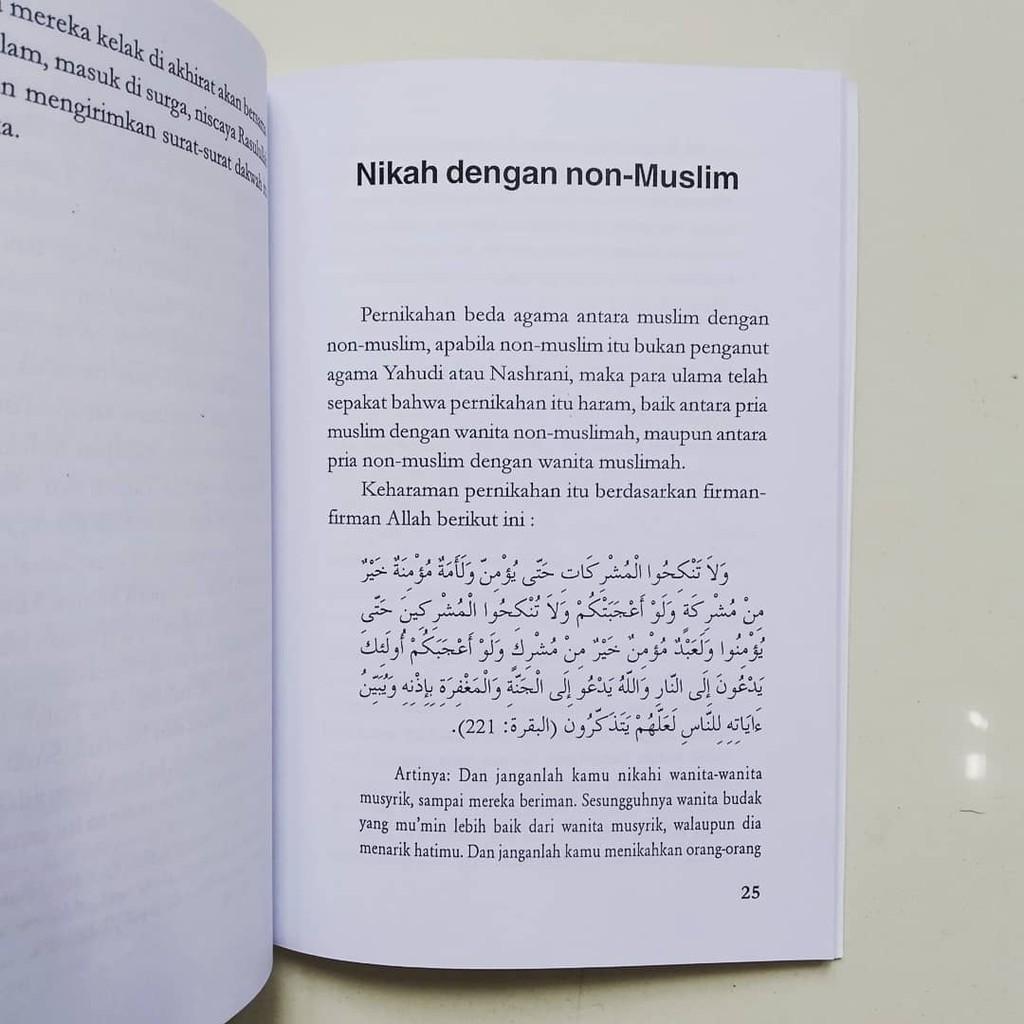 mereka kelak di akhirat akan
lam, masuk di surga, niscaya
n mengirimkan surat-surat dakwah
a.
Nikah dengan non-Muslim
Pernikahan beda agama antara muslim dengan
non-muslim, apabila non-muslim itu bukan penganut
agama Yahudi atau Nashrani, maka para ulama telah
sepakat bahwa pernikahan itu haram, baik antara pria
muslim dengan wanita non-muslimah, maupun antara
pria non-muslim dengan wanita muslimah.
Keharaman pernikahan itu berdasarkan firman-
firman Allah berikut ini :
وَلاَ تَنْكِحُوا الْمُشْرِكَاتِ حَتَّى يُؤْمِنَّ وَلَأَمَةٌ مُؤْمِنَةٌ خَيْرٌ
مِنْ مُشْرِكَةٍ وَلَوْ أَعْجَبَتْكُمْ وَلاَ تُنْكِحُوا الْمُشْرِكِينَ حَتَّى
يُؤْمِنُوا وَلَعَبْدٌ مُؤْمِنٌ خَيْرٌ مِنْ مُشْرِكٍ وَلَوْ أَعْجَبَكُمْ أُولَئِكَ
يَدْعُونَ إِلَى النَّارِ وَاللَّهُ يَدْعُو إِلَى الْجَنَّةِ وَالْمَغْفِرَةِ بِإِذْنِهِ وَيُبَيِّنُ
ءَايَاتِهِ لِلنَّاسِ لَعَلَّهُمْ يَتَذَكَّرُون (البقرة: 221).
Artinya: Dan janganlah kamu nikahi wanita-wanita
musyrik, sampai mereka beriman. Sesungguhnya wanita budak
yang mu'min lebih baik dari wanita musyrik, walaupun dia
menarik hatimu. Dan janganlah kamu menikahkan orang-orang
25